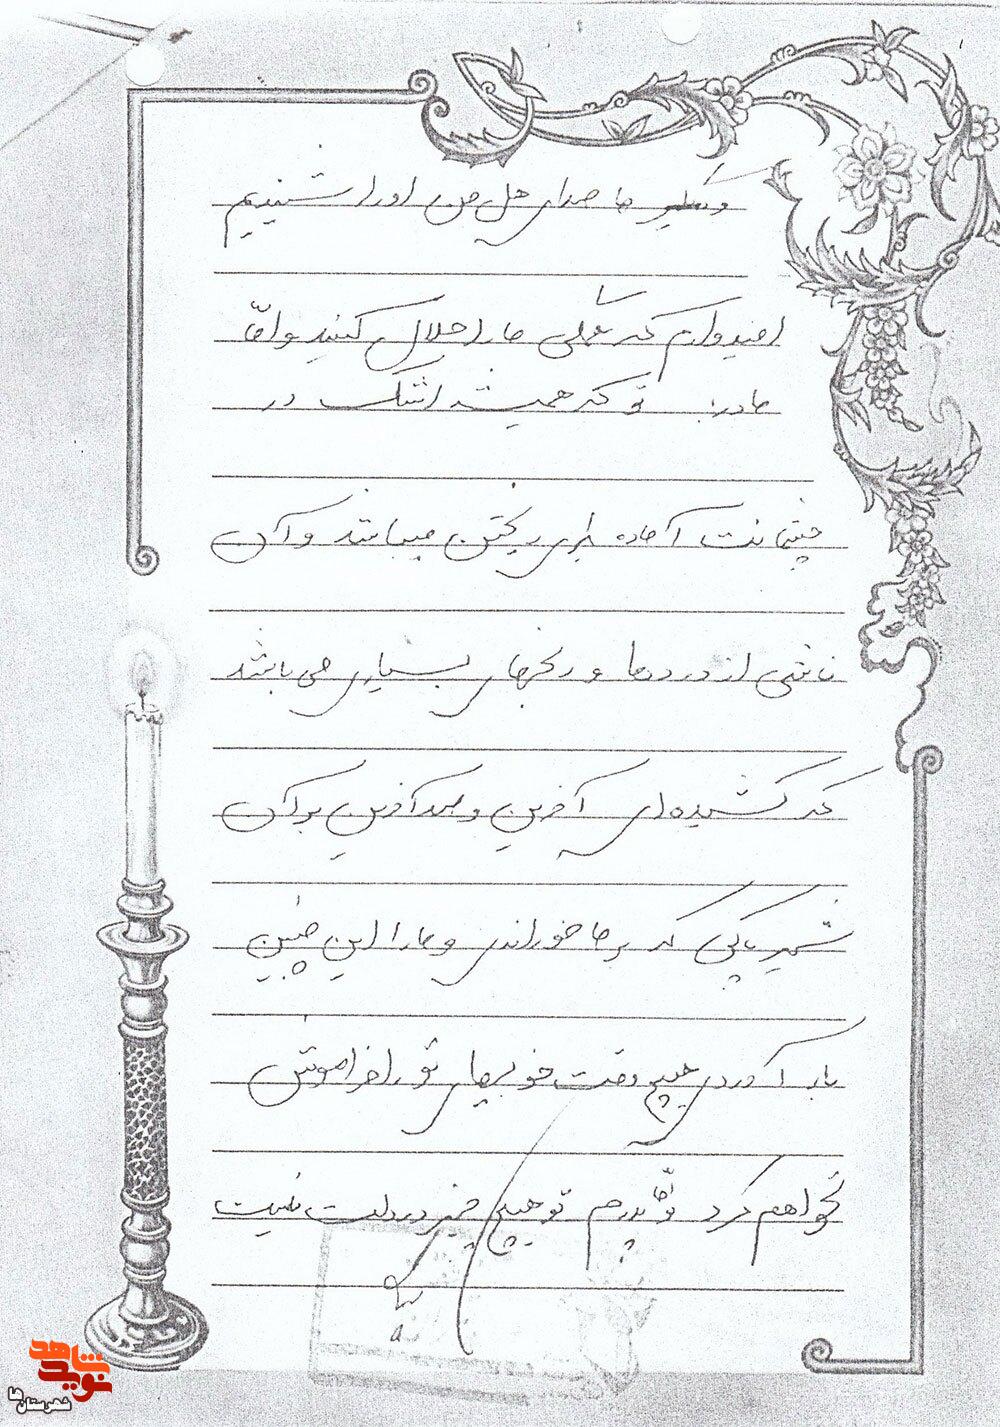 ما صدای هل من او را شنیدیم
امیدوارم که همگی ما را حلال کنید و امّا
مادر: تو که همیشه اشک در
چشمانت آماده برای ریختن میباشد و آن
ناشی از دردها و رنجهای بسیاری می باشد
که کشیده‌ای آفرین و صد آفرین بر آن
شیر پاکی که بما خوراندی و ما را این چنین
بار آوردی هیچ وقت خوبیهای تو را فراموش
نخواهم کرد و امّا پدرم تو هیچ چیز در دلت نیست
۵
نوید شاهد
شهرستان ها